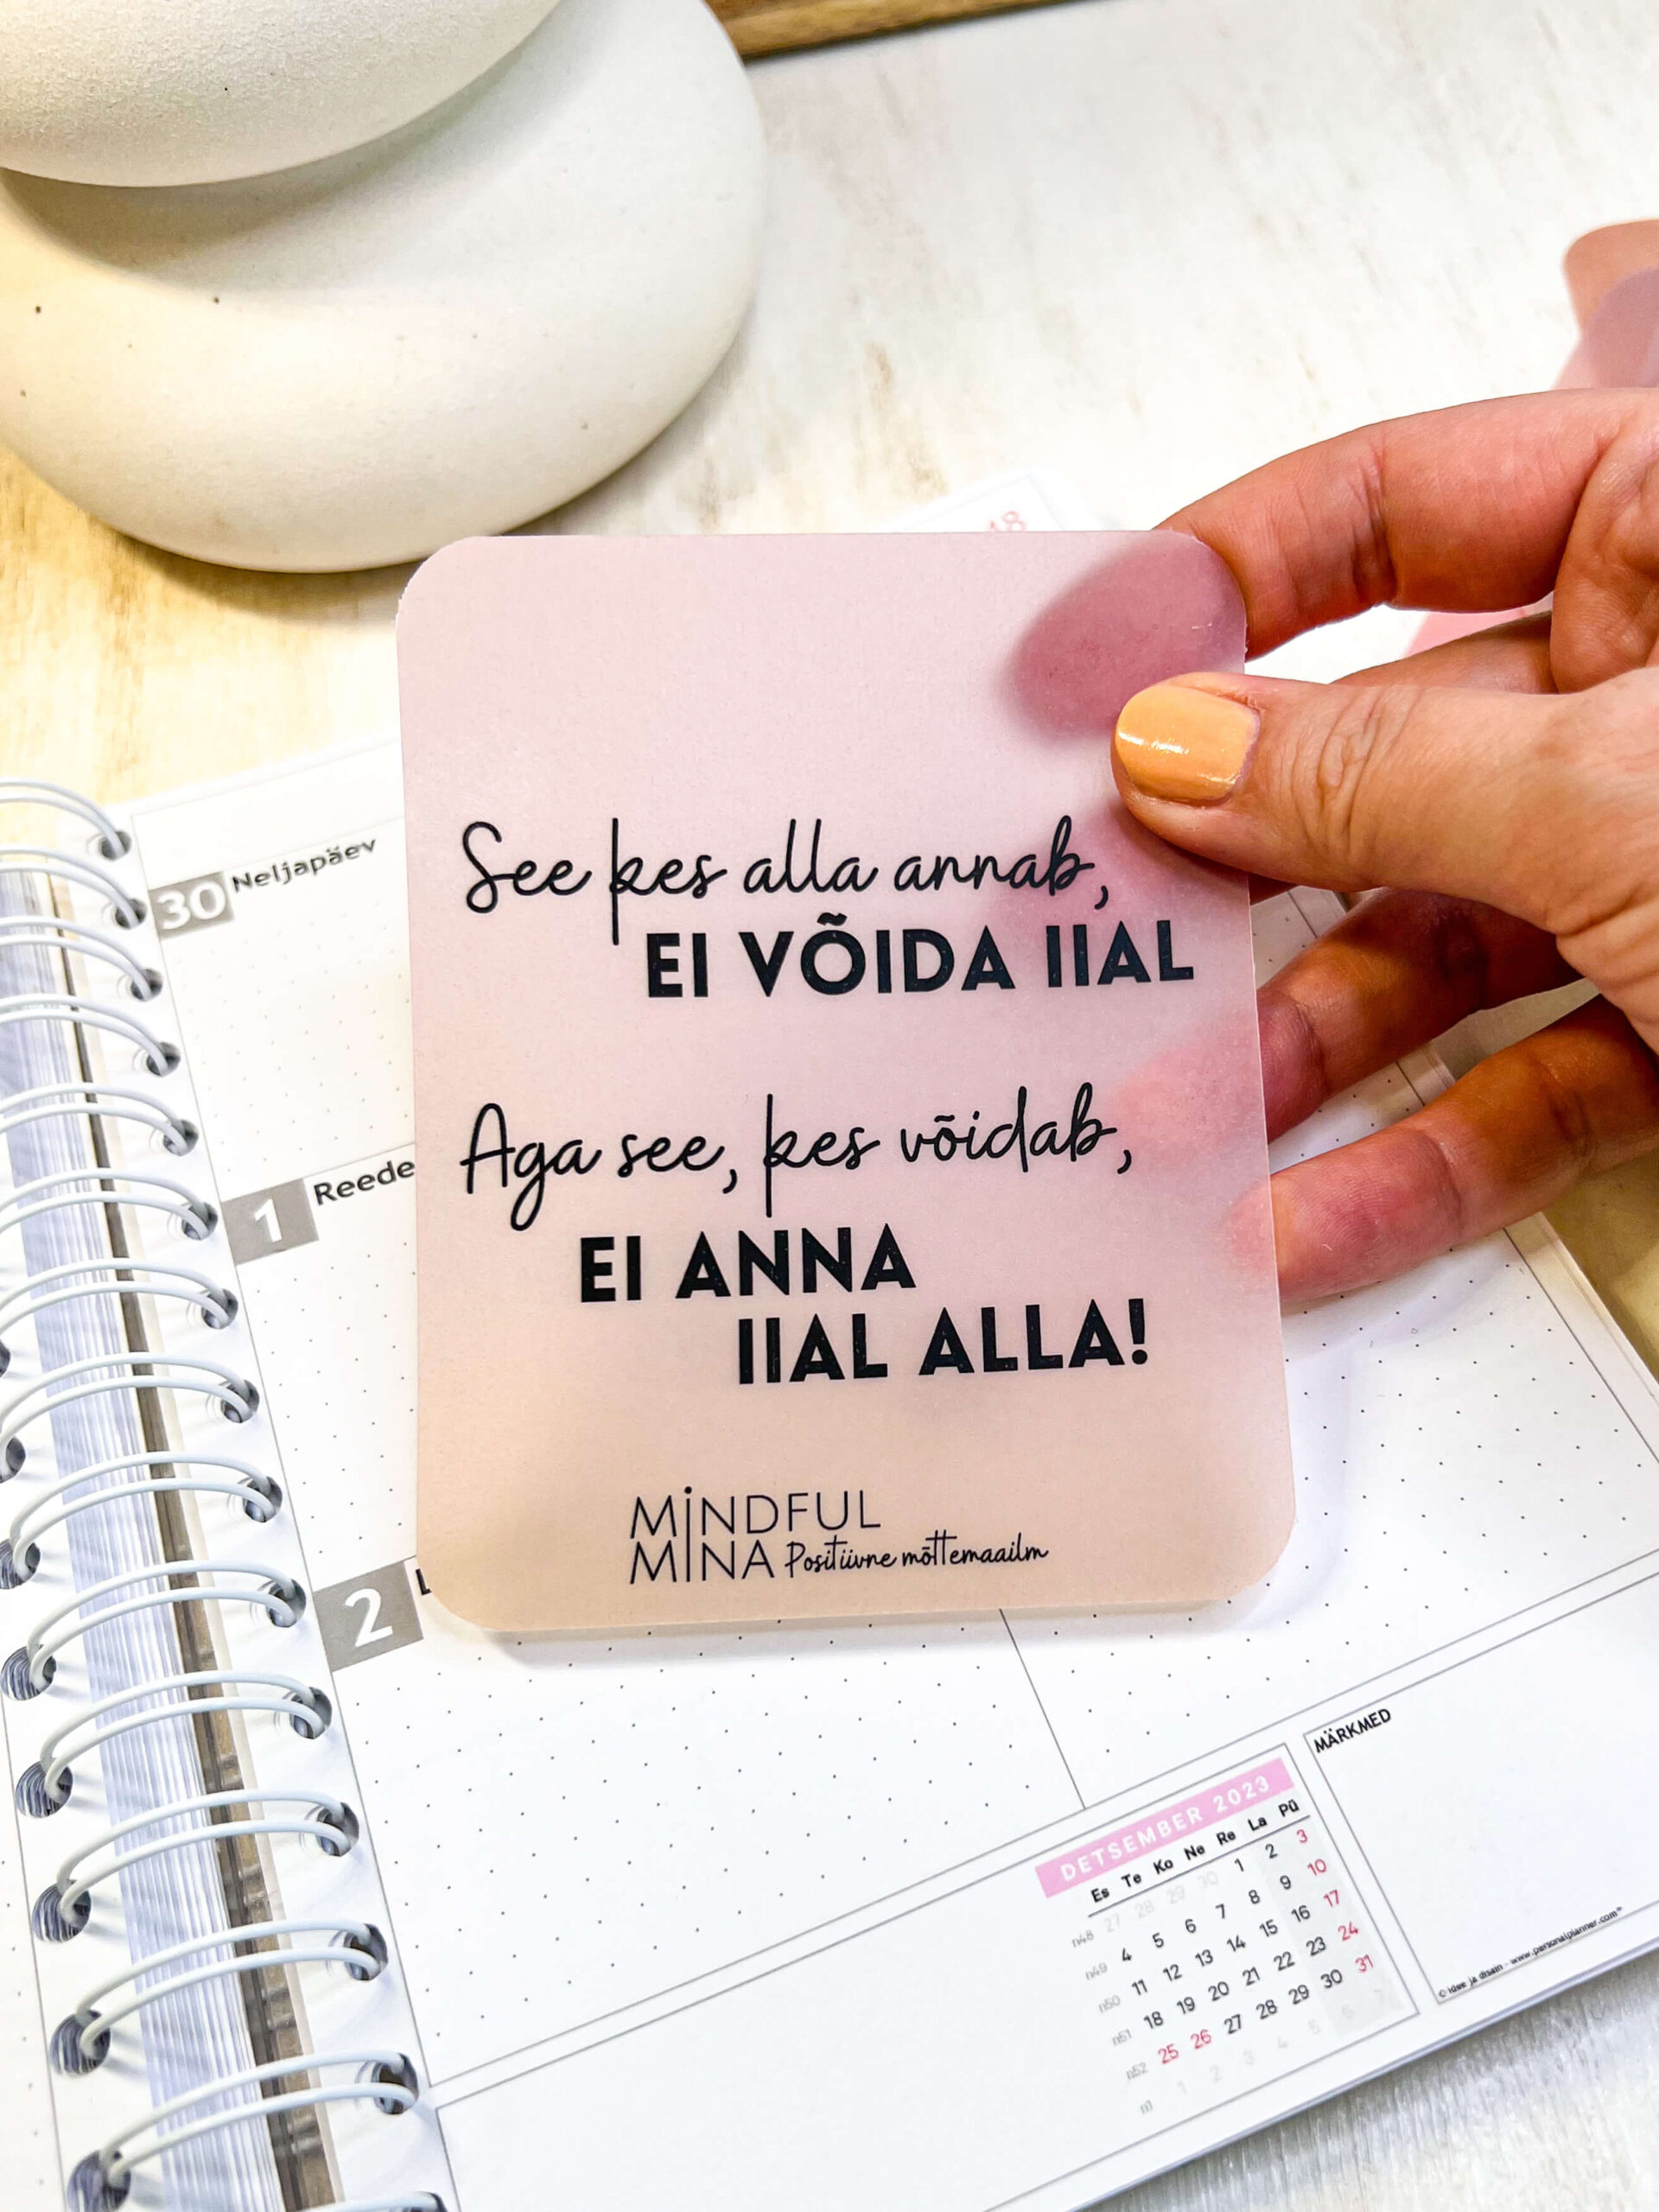 18
See kes alla annab,
EI VÕIDA IIAL
Aga see, kes võidab,
EI ANNA
IIAL ALLA!
MINDFUL
MINA Positiivne mõttemaailm
30 Neljapäev
1 Reede
2 L
DETSEMBER 2023
Es Te Ko Ne Re La Pü
n48 27 28 29 30 1 2 3
n49 4 5 6 7 8 9 10
n50 11 12 13 14 15 16 17
n51 18 19 20 21 22 23 24
n52 25 26 27 28 29 30 31
n1 1 2 3 4 5 6 7
MÄRKMED
© idee ja disain - www.personalplanner.com™